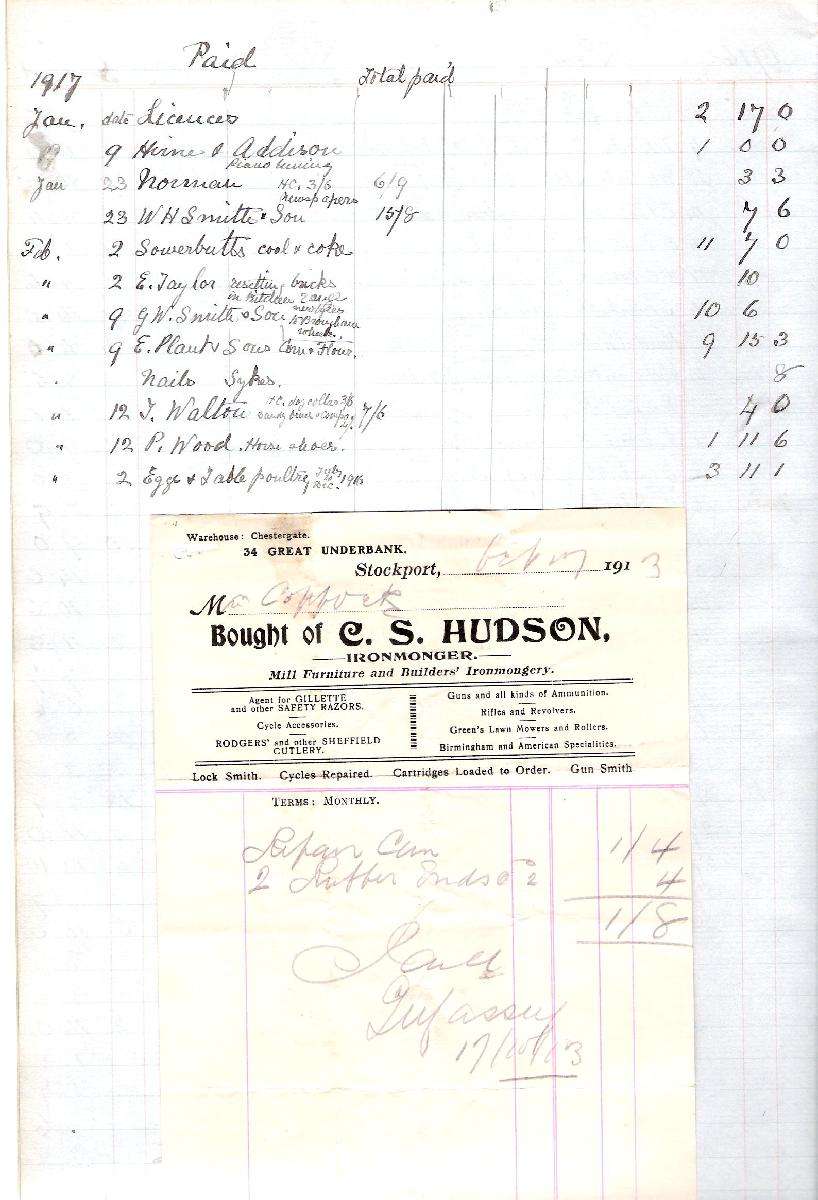 Paid
1917 Total paid
Jan. date Licences 2 17 0
9 Hirne & Addison 1 0 0
piano tuning
Jan 23 Norman HC. 3/6 6/9 3 3
newspapers
23 W H Smith & Son 15/8 7 6
Feb. 2 Sowerbutts coal & coke 11 7 0
" 2 E. Taylor resetting bricks 10
in kitchen range
" 9 G. W. Smith & Son new tyres 10 6
to Brougham
wheels.
" 9 E. Plant & Sons Corn & Flour. 9 15 3
. Nails Sykes. 8
" 12 J. Walton HC. dog collar 3/6 7/6 4 0
" 12 P. Wood. Horse shoes. 1 11 6
" 2 Eggs & Table poultry July to Dec. 1916 3 11 1
Warehouse: Chestergate.
34 GREAT UNDERBANK.
Stockport, Oct 17 1913
Mr Coppock
Bought of C. S. HUDSON,
IRONMONGER.
Mill Furniture and Builders' Ironmongery.
Agent for GILLETTE
and other SAFETY RAZORS.
Cycle Accessories.
RODGERS' and other SHEFFIELD
CUTLERY.
Guns and all kinds of Ammunition.
Rifles and Revolvers.
Green's Lawn Mowers and Rollers.
Birmingham and American Specialities.
Lock Smith. Cycles Repaired. Cartridges Loaded to Order. Gun Smith
TERMS: MONTHLY.
Repair Can 1/4
2 Rubber Ends @ 2 4
1/8
Paid
17/10/13